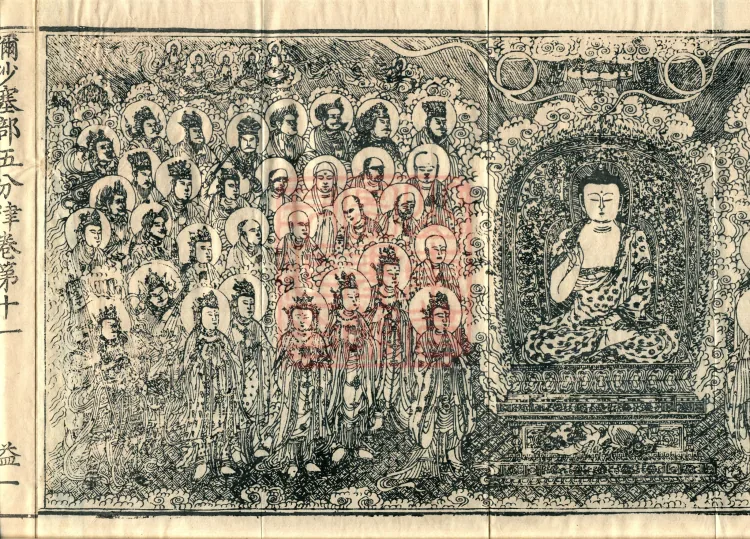 彌沙塞部五分律卷第十一
益一